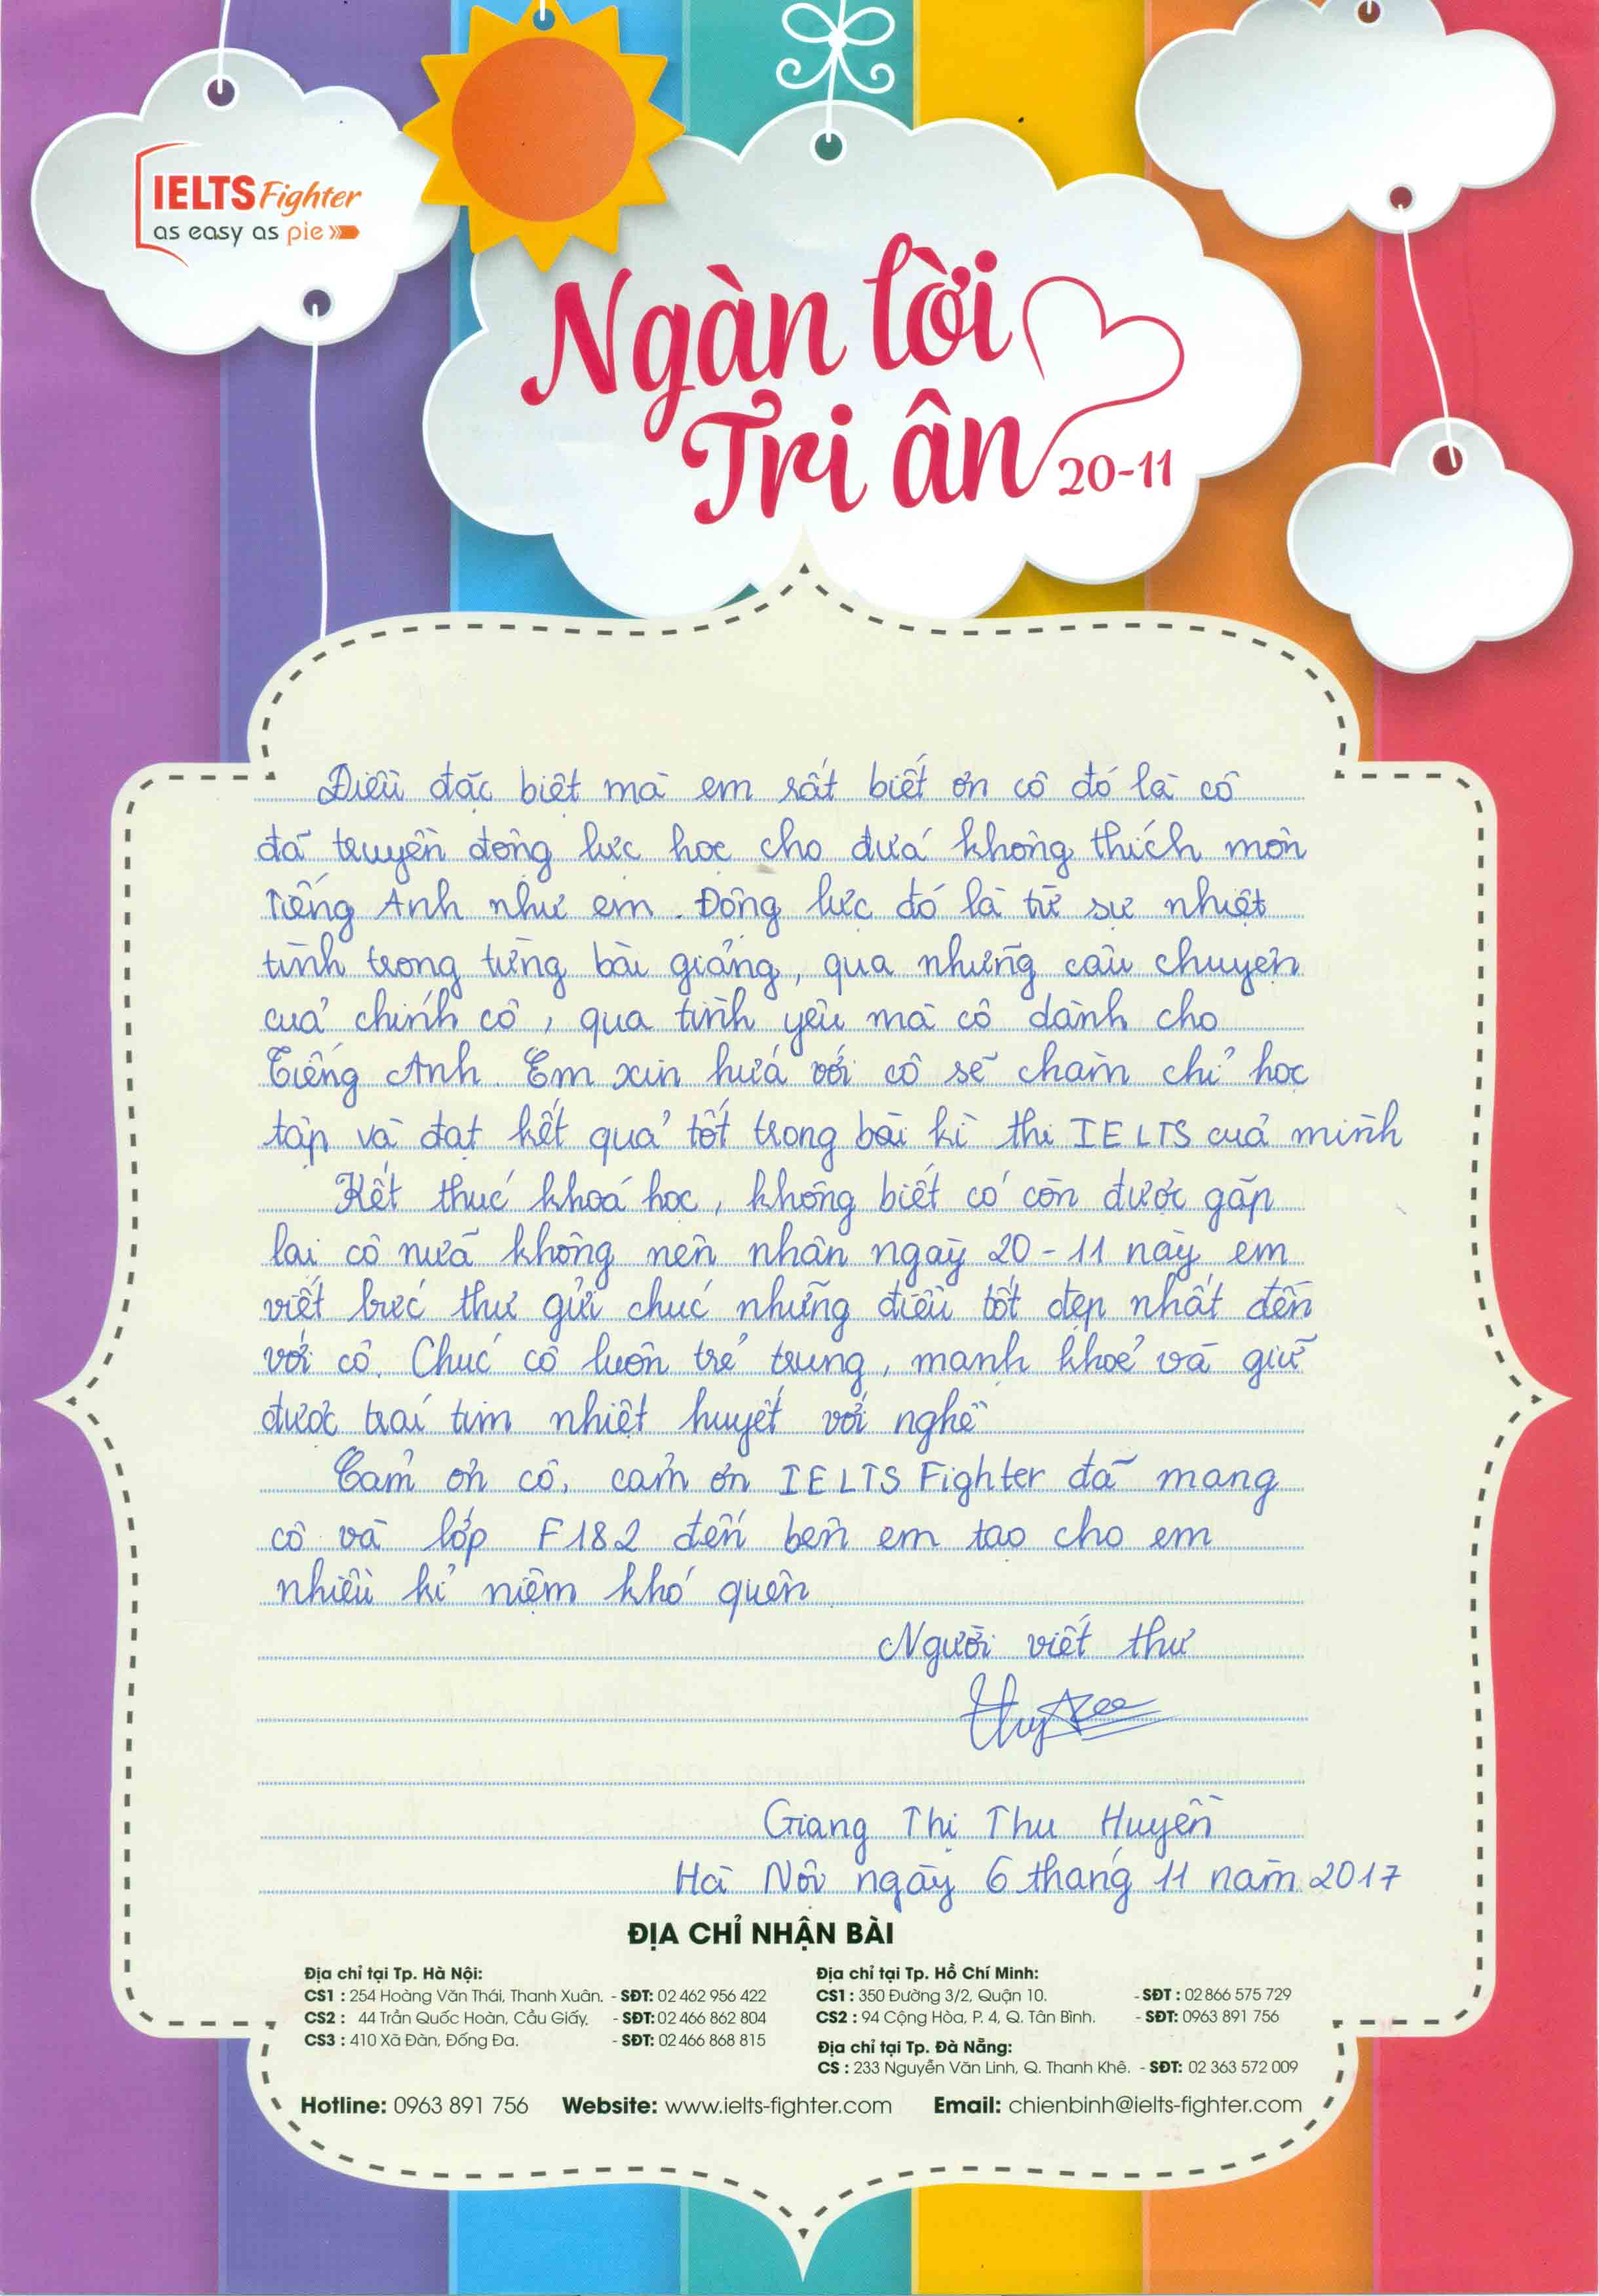 IELTS Fighter
as easy as pie
Ngàn lời
Tri ân
20-11
Điều đặc biệt mà em rất biết ơn cô đó là cô
đã truyền động lực học cho đứa không thích môn
Tiếng Anh như em. Động lực đó là từ sự nhiệt
tình trong từng bài giảng, qua những câu chuyện
của chính cô, qua tình yêu mà cô dành cho
Tiếng Anh. Em xin hứa với cô sẽ chăm chỉ học
tập và đạt kết quả tốt trong bài kì thi IELTS của mình
Kết thúc khoá học, không biết có còn được gặp
lại cô nữa không nên nhân ngày 20-11 này em
viết bức thư gửi chúc những điều tốt đẹp nhất đến
với cô. Chúc cô luôn trẻ trung, mạnh khoẻ và giữ
được trái tim nhiệt huyết với nghề
Cảm ơn cô, cảm ơn IELTS Fighter đã mang
cô và lớp F182 đến bên em tạo cho em
nhiều kỉ niệm khó quên
Người viết thư
Giang Thị Thu Huyền
Hà Nội ngày 6 tháng 11 năm 2017
ĐỊA CHỈ NHẬN BÀI
Địa chỉ tại Tp. Hà Nội:
CS1 : 254 Hoàng Văn Thái, Thanh Xuân. - SĐT: 02 462 956 422
CS2 : 44 Trần Quốc Hoàn, Cầu Giấy. - SĐT: 02 466 862 804
CS3 : 410 Xã Đàn, Đống Đa. - SĐT: 02 466 868 815
Địa chỉ tại Tp. Hồ Chí Minh:
CS1 : 350 Đường 3/2, Quận 10. - SĐT : 02 866 575 729
CS2 : 94 Cộng Hòa, P. 4, Q. Tân Bình. - SĐT: 0963 891 756
Địa chỉ tại Tp. Đà Nẵng:
CS : 233 Nguyễn Văn Linh, Q. Thanh Khê. - SĐT: 02 363 572 009
Hotline: 0963 891 756 Website: www.ielts-fighter.com Email: chienbinh@ielts-fighter.com